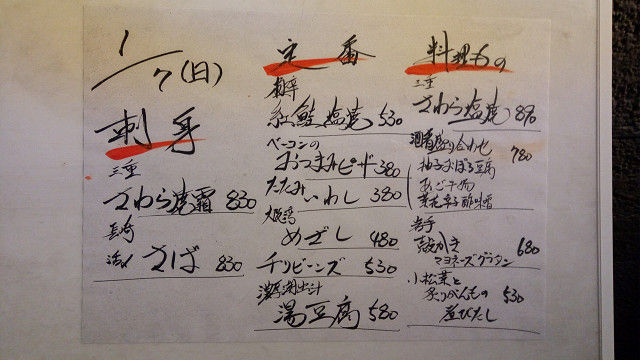 1/7(日)
刺身
三重
さわら焼霜 830
長崎
〆さば 830
定番
紅鮭塩焼 530
ベーコンの
おつまみピーナ 380
たたみいわし 380
大羽
めざし 480
チリビーンズ 530
湯豆腐 580
料理もの
三重
さわら塩焼 890
酒肴盛り合わせ 780
柚子おぼろ豆腐
菜花辛子酢味噌
岩手
殻かき
マヨネーズグラタン 680
小松菜と
煮びたし 530